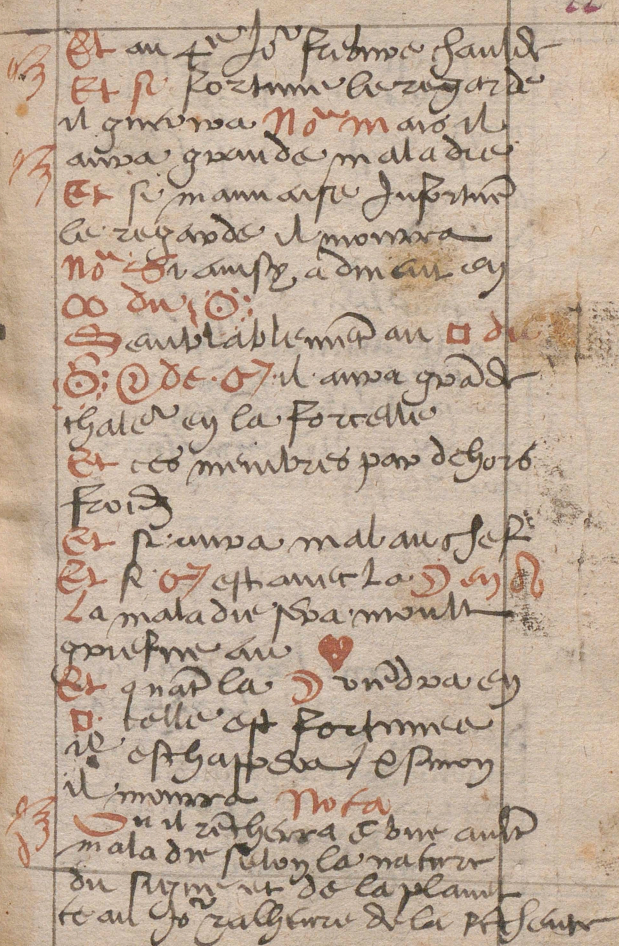 Et au 4e Jor fiebvre chaulde
Et se fortune le regarde
il guerira Noa Mais il
aura grande maladie
Et se mauvaise Infortune
le regarde il mourra
Noa Si ainsy advient en
☍ du ☉
Semblablement au □ du
☉ de ♂ il aura grande
challer en la forcelle
Et ces membres par dehors
froidz
Et se aura mal au chef
Et se ♂ est avec la ☽ en ♌
La maladie sera moult
griefve au ♥
Et quant la ☽ viendra en
□ telle est fortunee
il eschappera / Et sinon
il mourra Nota
Ou il rencherra en une aultre
maladie selon la nature
du signe et de la planet
te au Jor et alheure de la